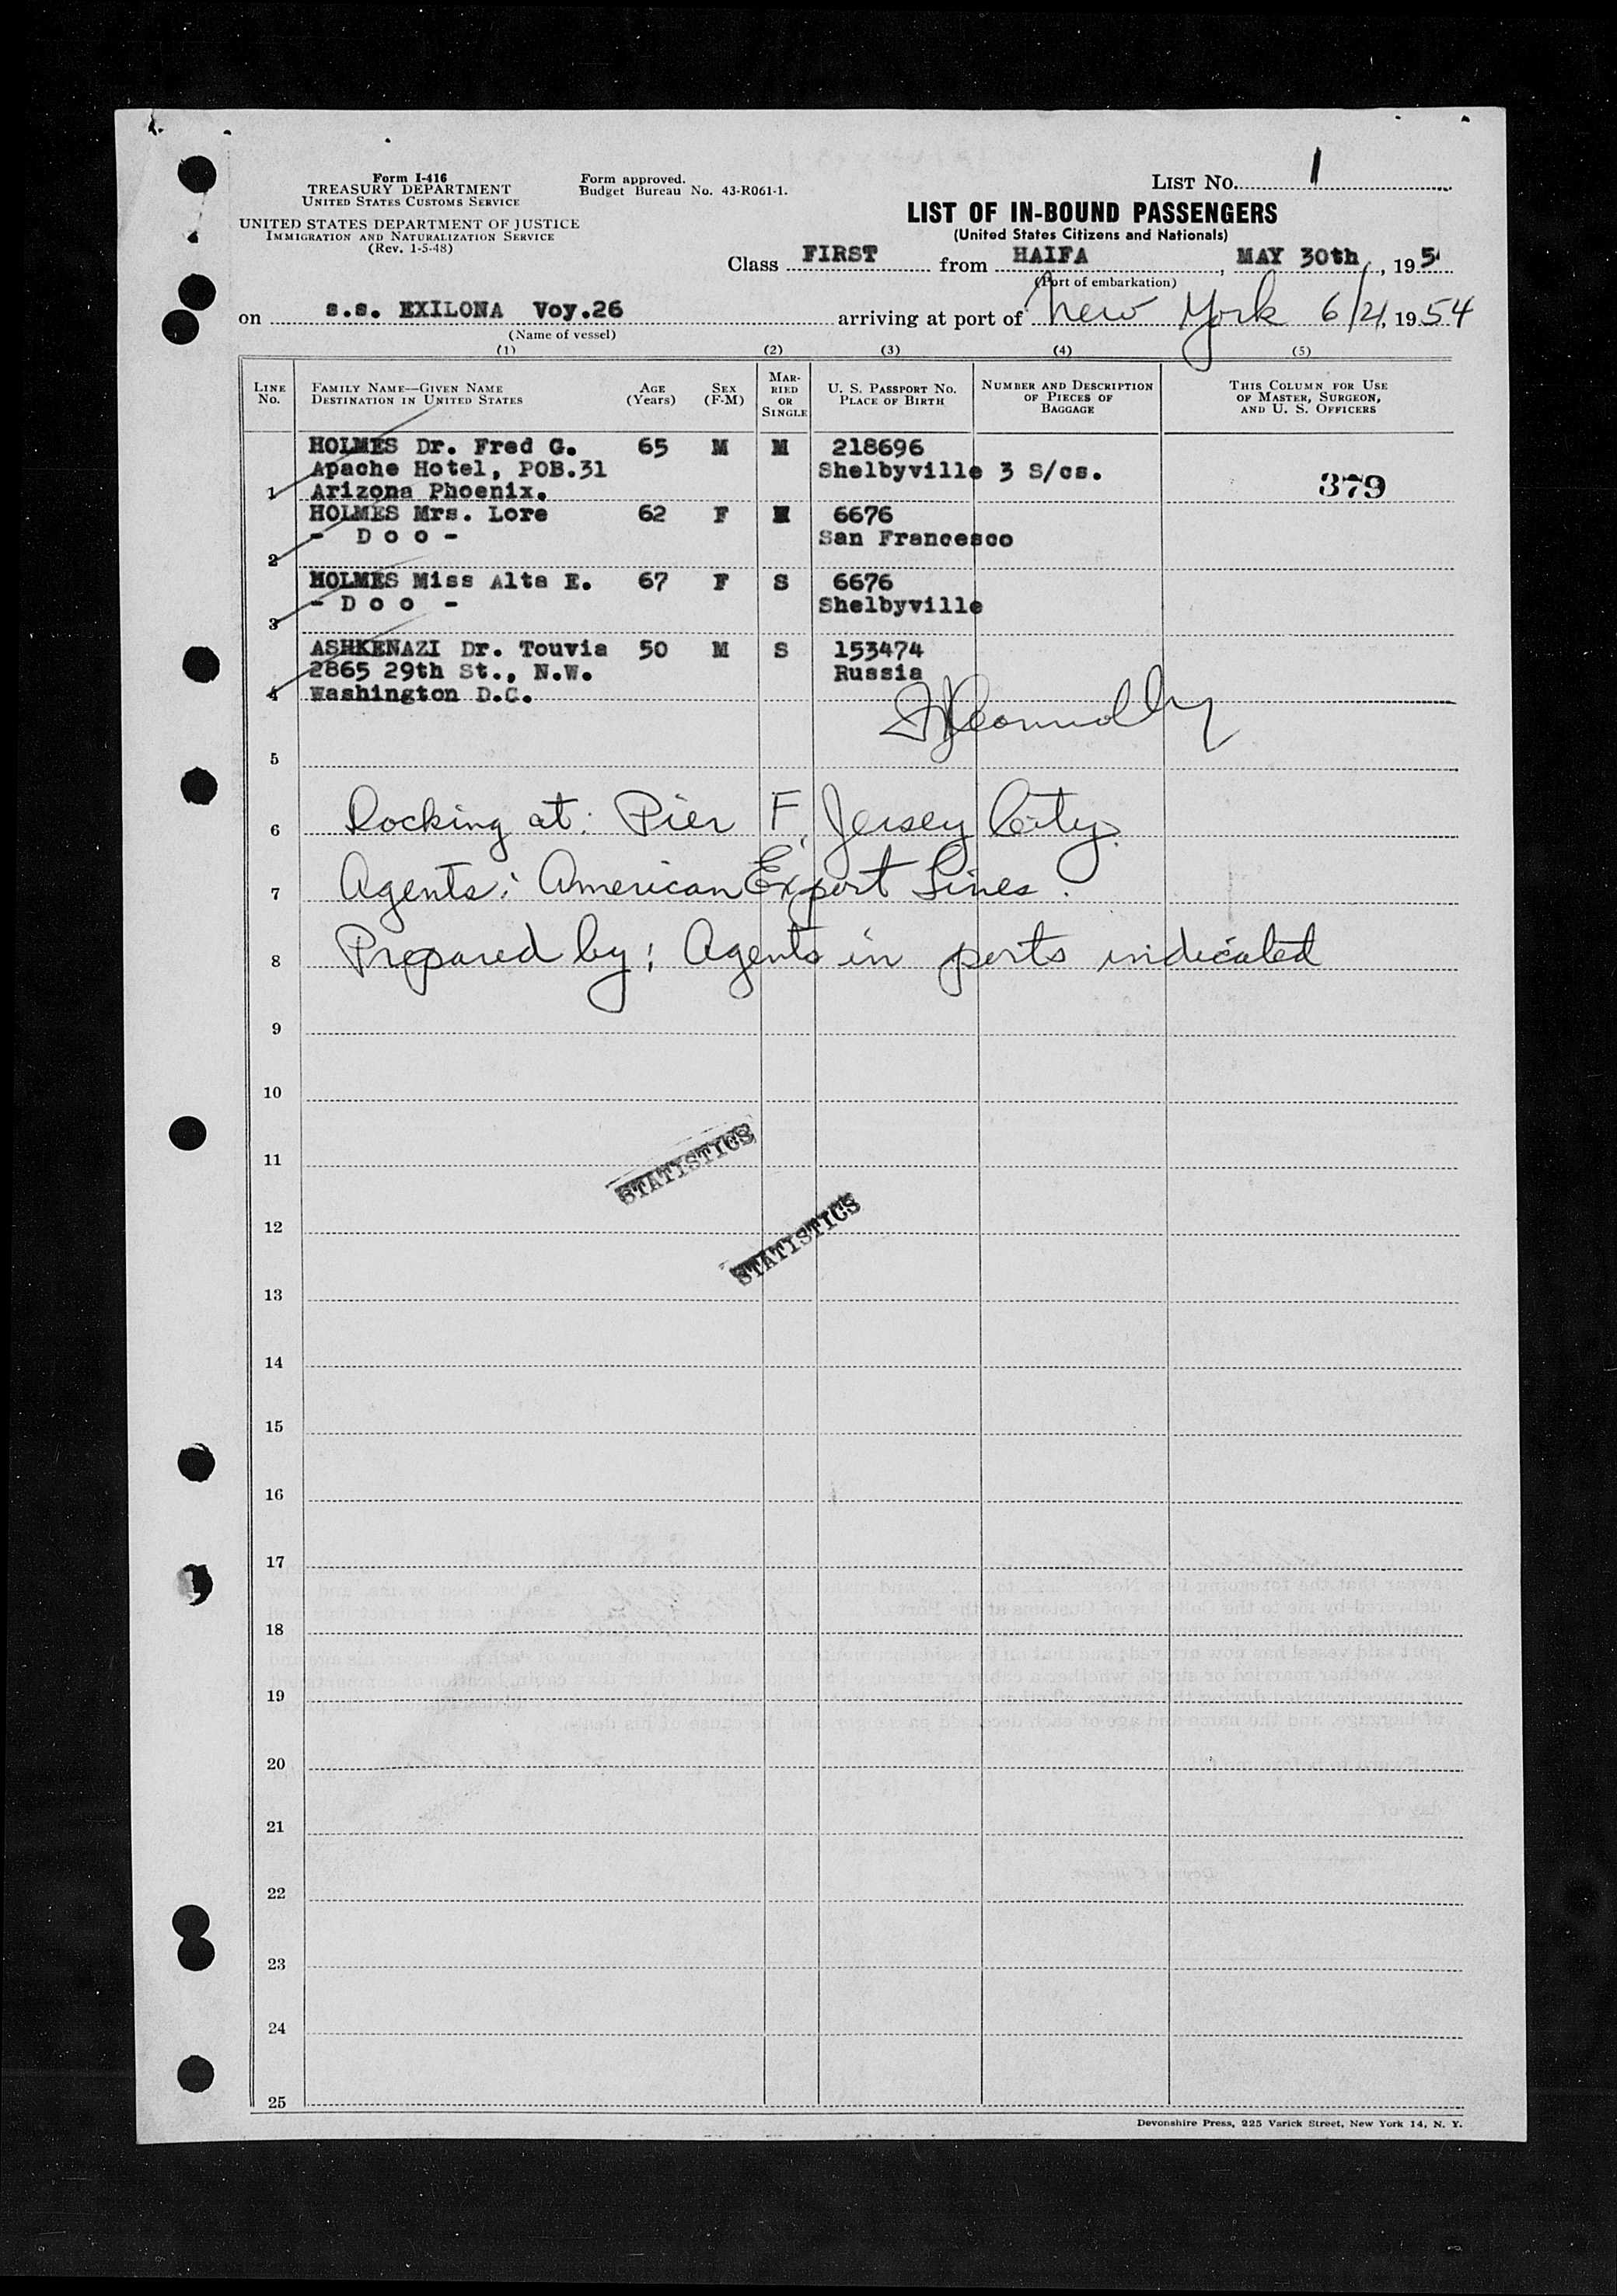 Form I-416
TREASURY DEPARTMENT
UNITED STATES CUSTOMS SERVICE
UNITED STATES DEPARTMENT OF JUSTICE
IMMIGRATION AND NATURALIZATION SERVICE
(Rev. 1-5-48)
Form approved.
Budget Bureau No. 43-R061-1.
LIST NO. 1
LIST OF IN-BOUND PASSENGERS
(United States Citizens and Nationals)
Class FIRST from HAIFA, MAY 30th, 195
(Port of embarkation)
on s.s. EXILONA Voy.26 arriving at port of New York 6/21, 1954
(Name of vessel)
(1) (2) (3) (4) (5)
LINE NO. FAMILY NAME—GIVEN NAME DESTINATION IN UNITED STATES AGE (Years) SEX (F-M) MARRIED OR SINGLE U. S. PASSPORT NO. PLACE OF BIRTH NUMBER AND DESCRIPTION OF PIECES OF BAGGAGE THIS COLUMN FOR USE OF MASTER, SURGEON, AND U. S. OFFICERS
HOLMES Dr. Fred G. 65 M M 218696
Apache Hotel, POB.31 Shelbyville 3 S/cs. 379
1 Arizona Phoenix.
HOLMES Mrs. Lore 62 F M 6676
- D o o - San Francesco
2
HOLMES Miss Alta E. 67 F S 6676
- D o o - Shelbyville
3
ASHKENAZI Dr. Touvia 50 M S 153474
2865 29th St., N.W. Russia
4 Washington D.C.
5
6 Docking at: Pier F, Jersey City.
7 Agents: American Export Lines.
8 Prepared by: Agents in ports indicated
9
10
11
STATISTICS
12
STATISTICS
13
14
15
16
17
18
19
20
21
22
23
24
25
Devonshire Press, 225 Varick Street, New York 14, N. Y.